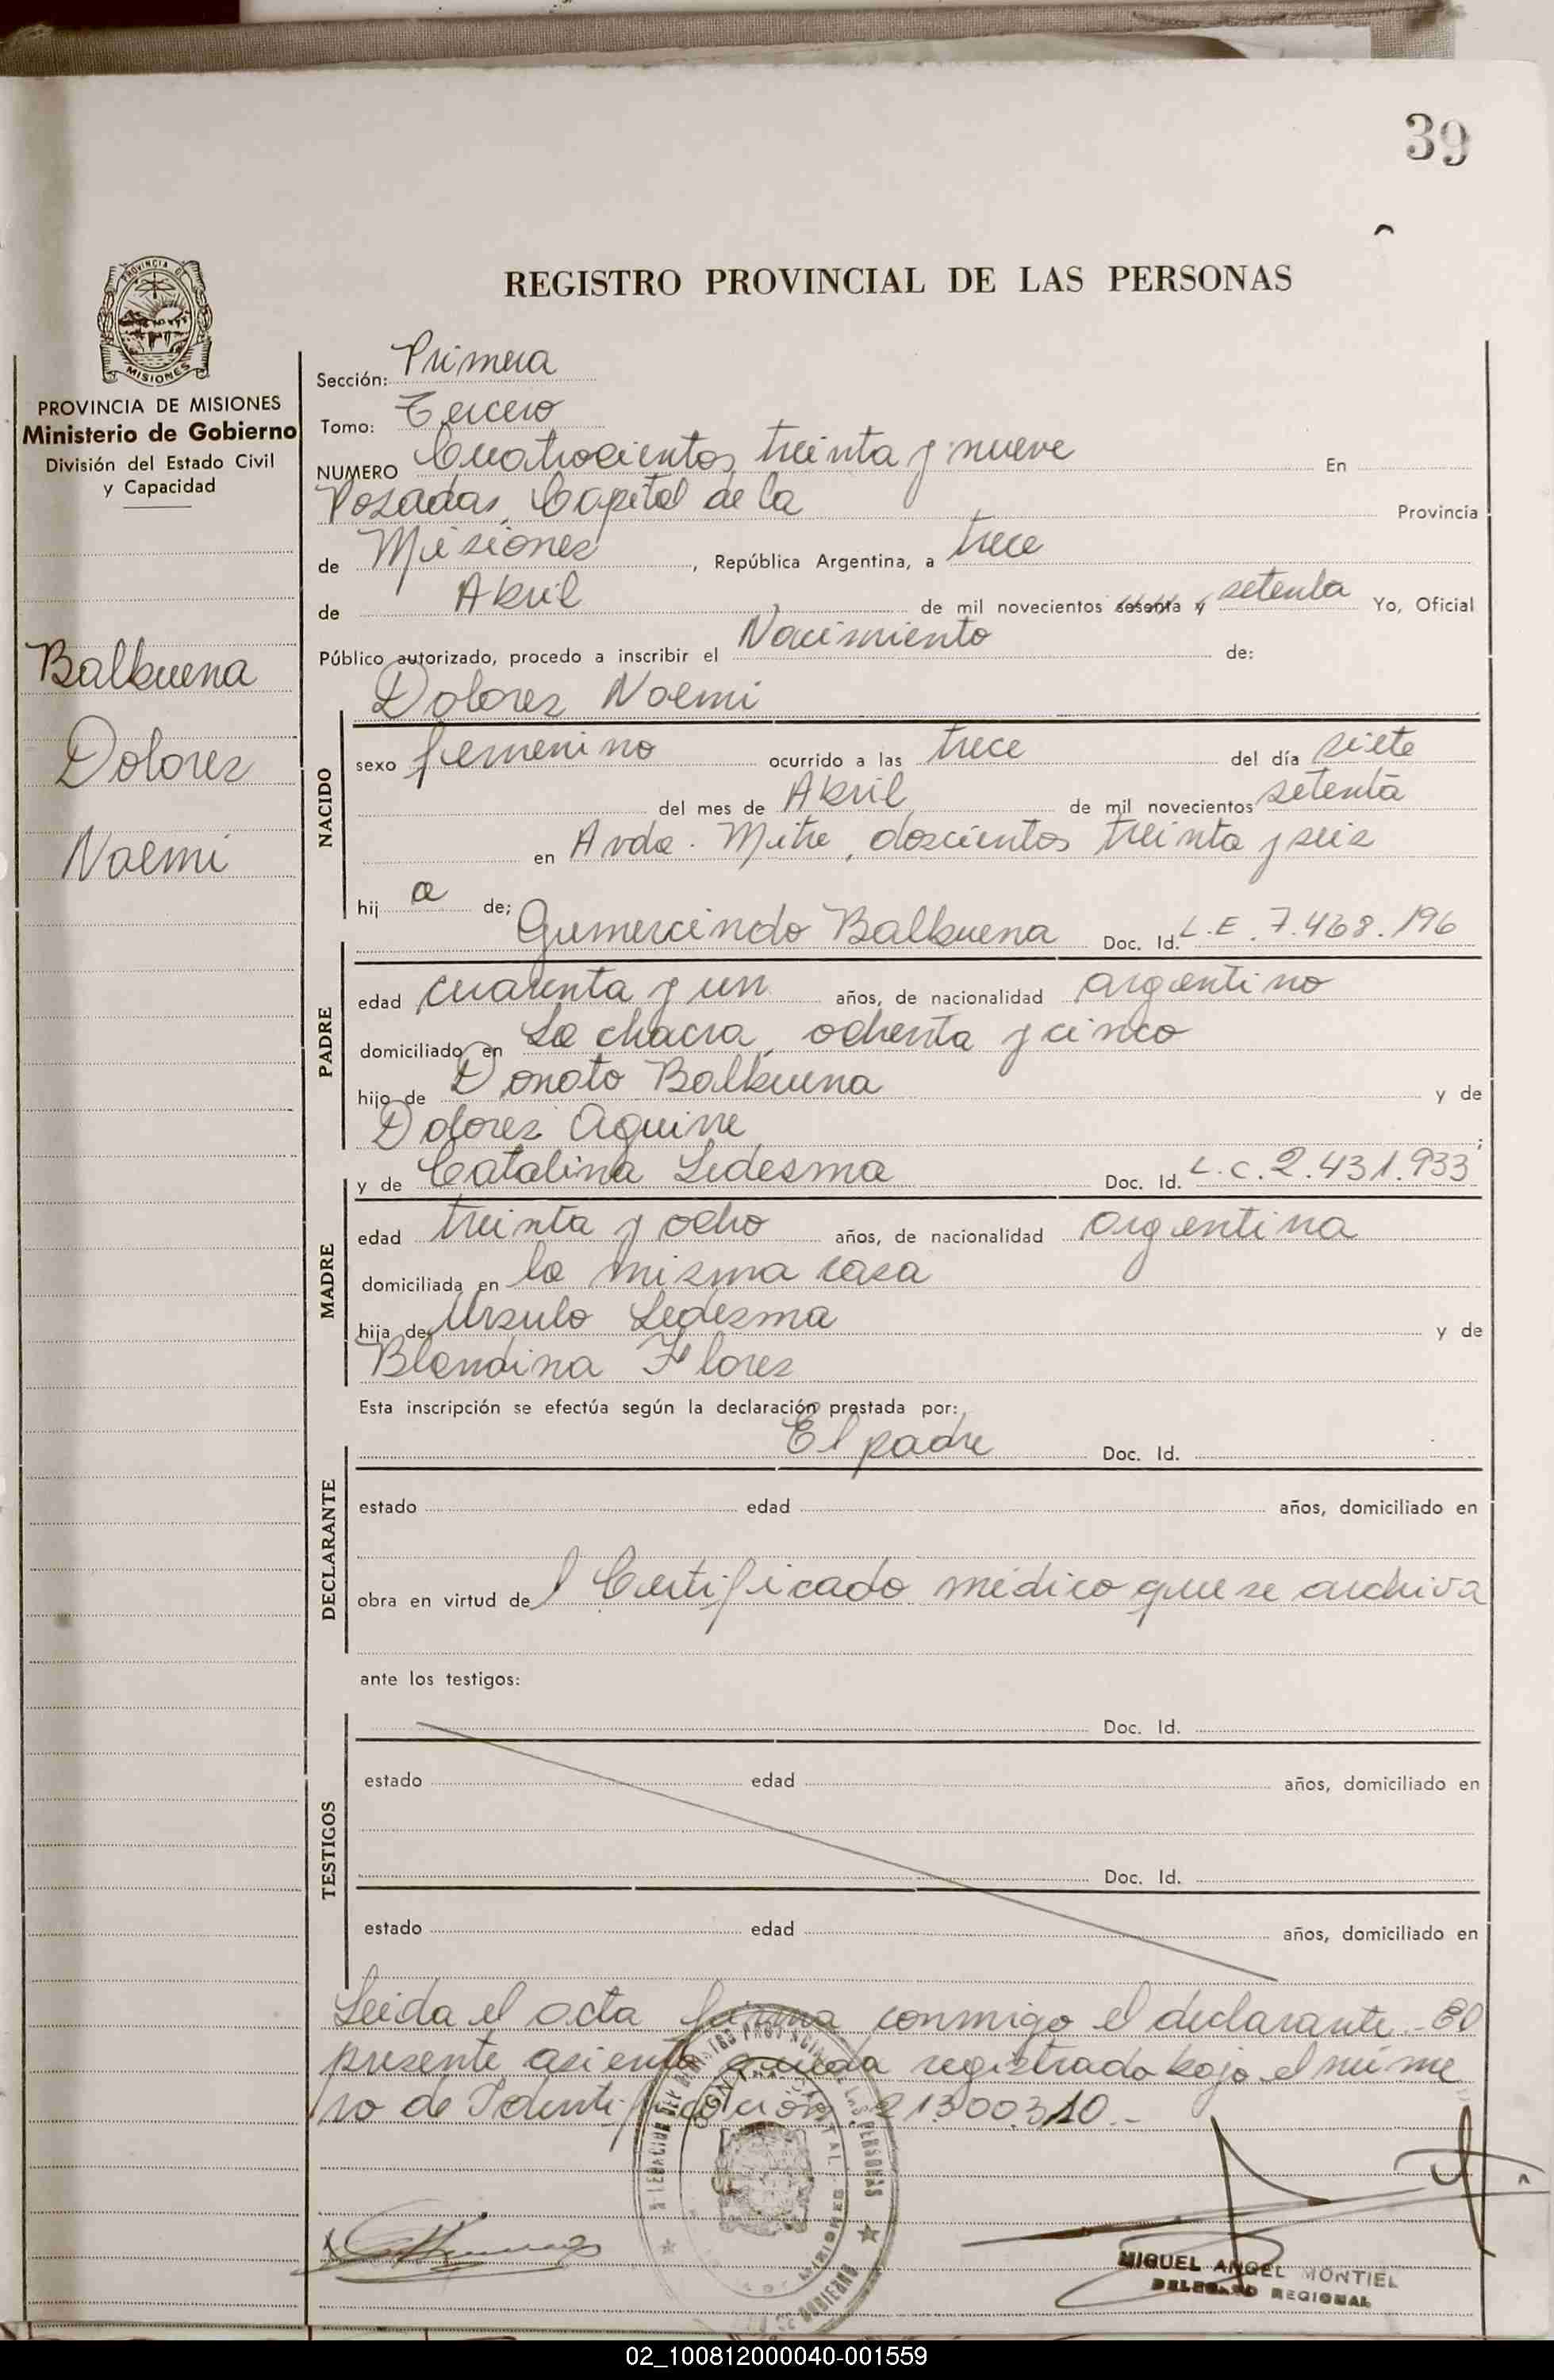 39
REGISTRO PROVINCIAL DE LAS PERSONAS
PROVINCIA DE MISIONES
PROVINCIA DE MISIONES
Ministerio de Gobierno
División del Estado Civil
y Capacidad
Balbuena
Dolores
Noemi
Sección: Primera
Tomo: Tercero
NUMERO Cuatrocientos treinta y nueve En
Posadas, Capital de la Provincia
de Misiones, República Argentina, a trece
de Abril de mil novecientos sesenta y setenta Yo, Oficial
Público autorizado, procedo a inscribir el Nacimiento de:
Dolores Noemi
NACIDO
sexo femenino ocurrido a las trece del día siete
del mes de Abril de mil novecientos setenta
en Avda. Mitre, doscientos treinta y seis
hij a de;
Gumercindo Balbuena Doc. Id. L.E. 7.468.196
PADRE
edad cuarenta y un años, de nacionalidad argentino
domiciliado en La chacra, ochenta y cinco
hijo de Donato Balbuena y de
Dolores Aguirre ;
y de Catalina Ledesma Doc. Id. L.C. 2.431.933
MADRE
edad treinta y ocho años, de nacionalidad argentina
domiciliada en la misma casa
hija de Ursulo Ledesma y de
Blandina Flores
Esta inscripción se efectúa según la declaración prestada por:
El padre Doc. Id.
DECLARANTE
estado edad años, domiciliado en
obra en virtud del Certificado médico que se archiva
ante los testigos:
Doc. Id.
TESTIGOS
estado edad años, domiciliado en
Doc. Id.
estado edad años, domiciliado en
Leida el acta firma conmigo el declarante.- El
presente asiento queda registrado bajo el núme
ro de Identificación 21.300.310.-
MIGUEL ANGEL MONTIEL
DELEGADO REGIONAL
02_100812000040-001559